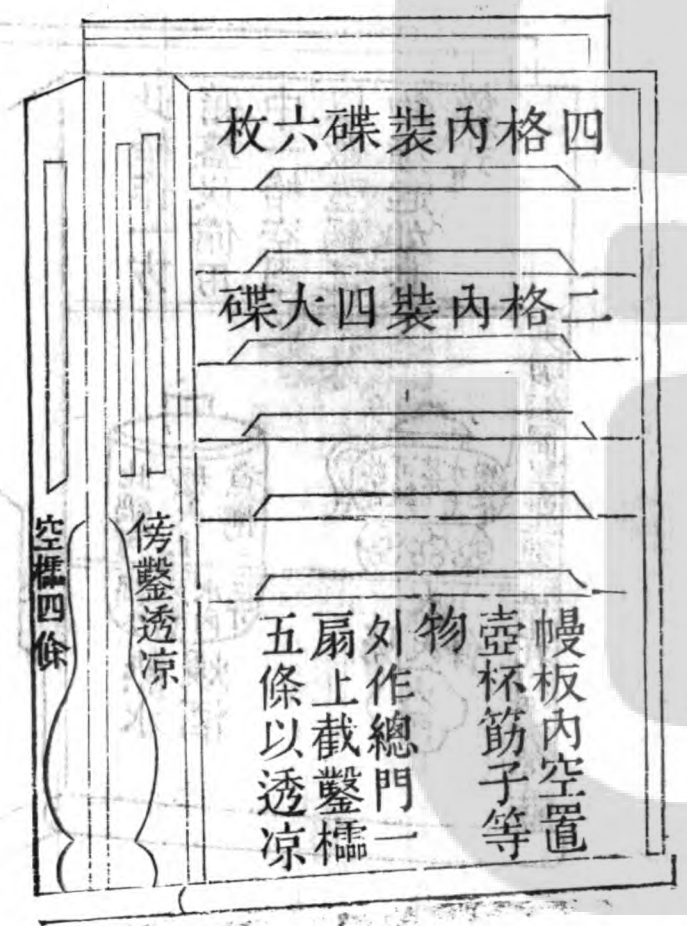 四格內裝碟六枚
二格內裝四大碟
幔板內空置
壺杯筯子等
物
外作總門一
扇上截鑿櫺
五條以透凉
傍鑿透凉
空櫺四條